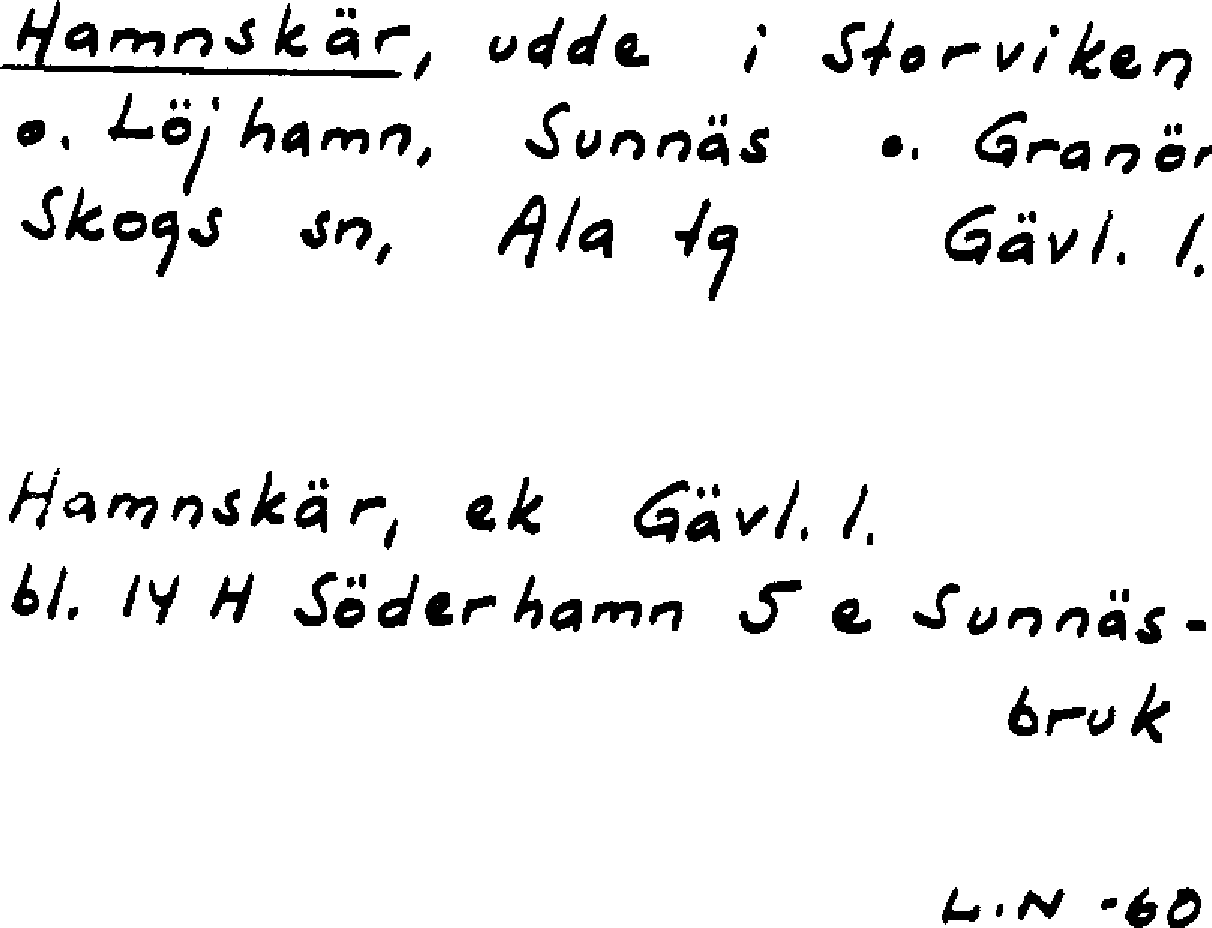 Hamnskär, udde i Storviken
o. Löjhamn, Sunnäs o. Granör
Skogs sn, Ala tg Gävl. l.
Hamnskär, ek Gävl. l.
bl. 14 H Söderhamn 5 e Sunnäs-
bruk
L.N -60